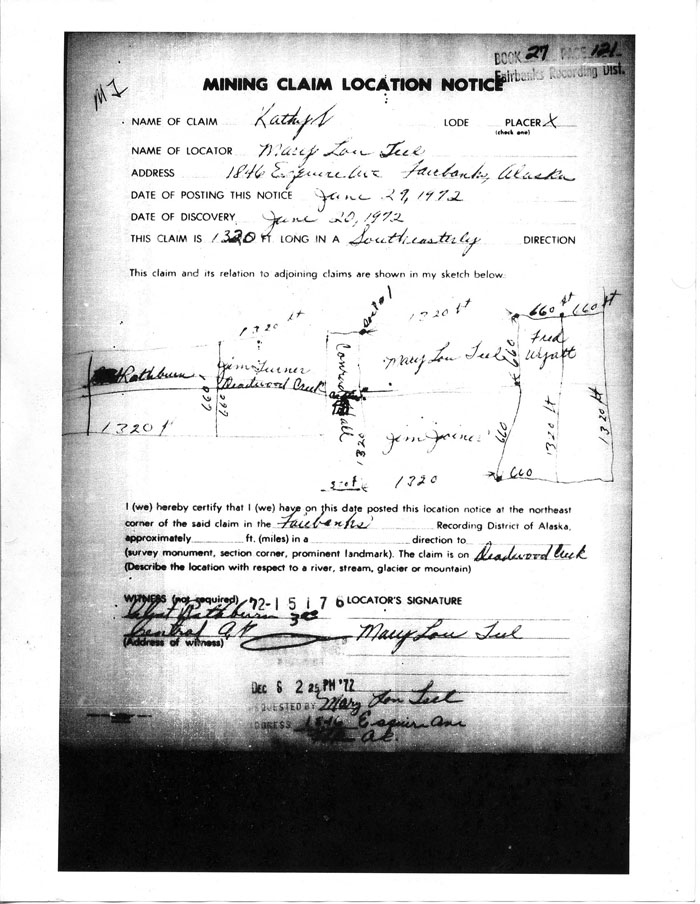 BOOK 27 PAGE 121
Fairbanks Recording Dist.
MI
MINING CLAIM LOCATION NOTICE
NAME OF CLAIM Kathy LODE PLACER X
(check one)
NAME OF LOCATOR Mary Lou Teel
ADDRESS 1846 Esquire Ave Fairbanks, Alaska
DATE OF POSTING THIS NOTICE June 29, 1972
DATE OF DISCOVERY June 20, 1972
THIS CLAIM IS 1320 FT. LONG IN A Southeasterly DIRECTION
This claim and its relation to adjoining claims are shown in my sketch below:
1320 ft
1320 ft
660 ft 660 ft
Rathburn
Jim Turner
Deadwood Creek
Hall
Mary Lou Teel
Fred
Wyatt
660
660
660
1320 ft
1320
Jim Joiner
660
1320 ft
1320 ft
1320
660
I (we) hereby certify that I (we) have on this date posted this location notice at the northeast
corner of the said claim in the Fairbanks Recording District of Alaska,
approximately ft. (miles) in a direction to
(survey monument, section corner, prominent landmark). The claim is on Deadwood Creek
(Describe the location with respect to a river, stream, glacier or mountain)
WITNESS (not required) 72-15176 LOCATOR'S SIGNATURE
Rathburn
Central AK Mary Lou Teel
(Address of witness)
DEC 6 2 25 PM '72
REQUESTED BY Mary Lou Teel
ADDRESS 1846 Esquire Ave
AK.